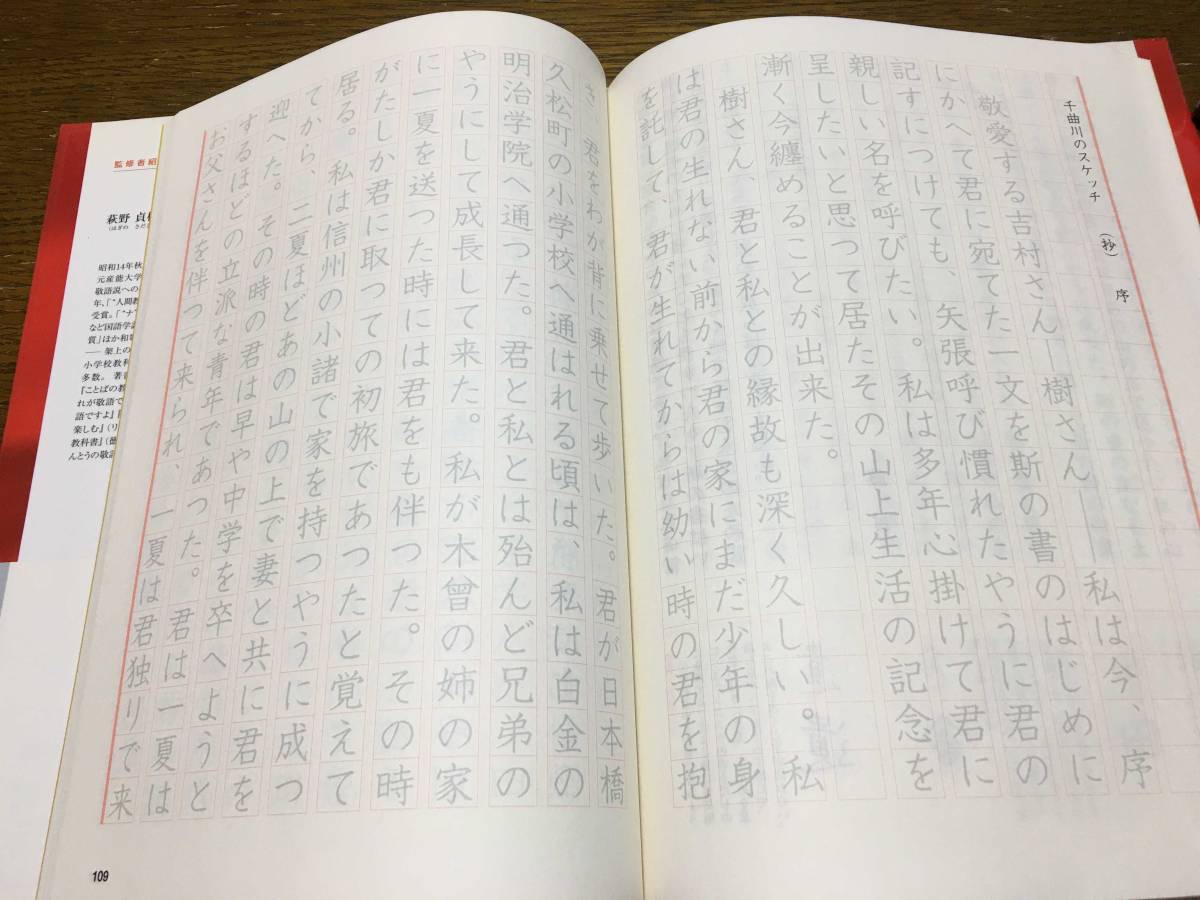 千曲川のスケッチ (抄) 序
敬愛する吉村さん―樹さん――私は今、序
にかへて君に宛てた一文を斯の書のはじめに
記すにつけても、矢張呼び慣れたやうに君の
親しい名を呼びたい。私は多年心掛けて君に
呈したいと思つて居たその山上生活の記念を
漸く今纏めることが出来た。
樹さん、君と私との縁故も深く久しい。私
は君の生れない前から君の家にまだ少年の身
を託して、君が生れてからは幼い時の君を抱
き、君をわが背に乗せて歩いた。君が日本橋
久松町の小学校へ通はれる頃は、私は白金の
明治学院へ通つた。君と私とは殆んど兄弟の
やうにして成長して来た。私が木曾の姉の家
に一夏を送つた時には君をも伴つた。その時
がたしか君に取つての初旅であつたと覚えて
居る。私は信州の小諸で家を持つやうに成つ
てから、二夏ほどあの山の上で妻と共に君を
迎へた。その時の君は早や中学を卒へようと
するほどの立派な青年であつた。君は一夏は
お父さんを伴つて来られ、一夏は君独りで来
109
監修者紹
萩野 貞
(はぎの さだ
昭和14年秋
元産能大学
敬語説への
年、「"人間教
受賞。「"ナ
など国語学
質」ほか和
── 架上の
小学校教科
多数。 著
『ことばの教
れが敬語で
語ですよ』
楽しむ』(リ
教科書』(徳
んとうの敬